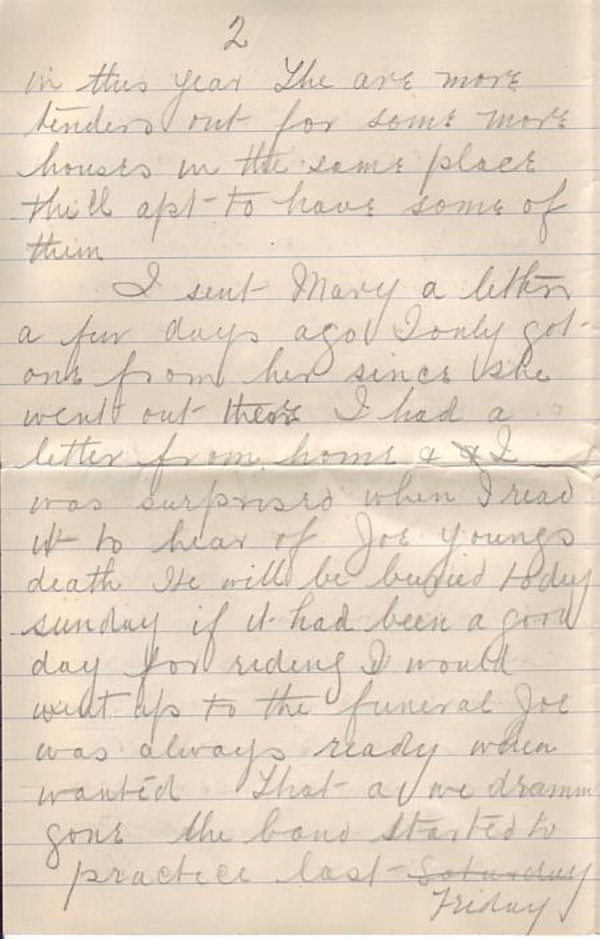 2
in this year The are more
tenders out for some more
houses in the same place
the'll apt to have some of
them
I sent Mary a letter
a few days ago I only got
one from her since she
went out there I had a
letter from home & & I
was surprised when I read
it to hear of Joe Youngs
death He will be buried today
sunday if it had been a good
day for riding I would
went up to the funeral Joe
was always ready when
wanted That a drumm
gone the band started to
practice last Saturday
Friday